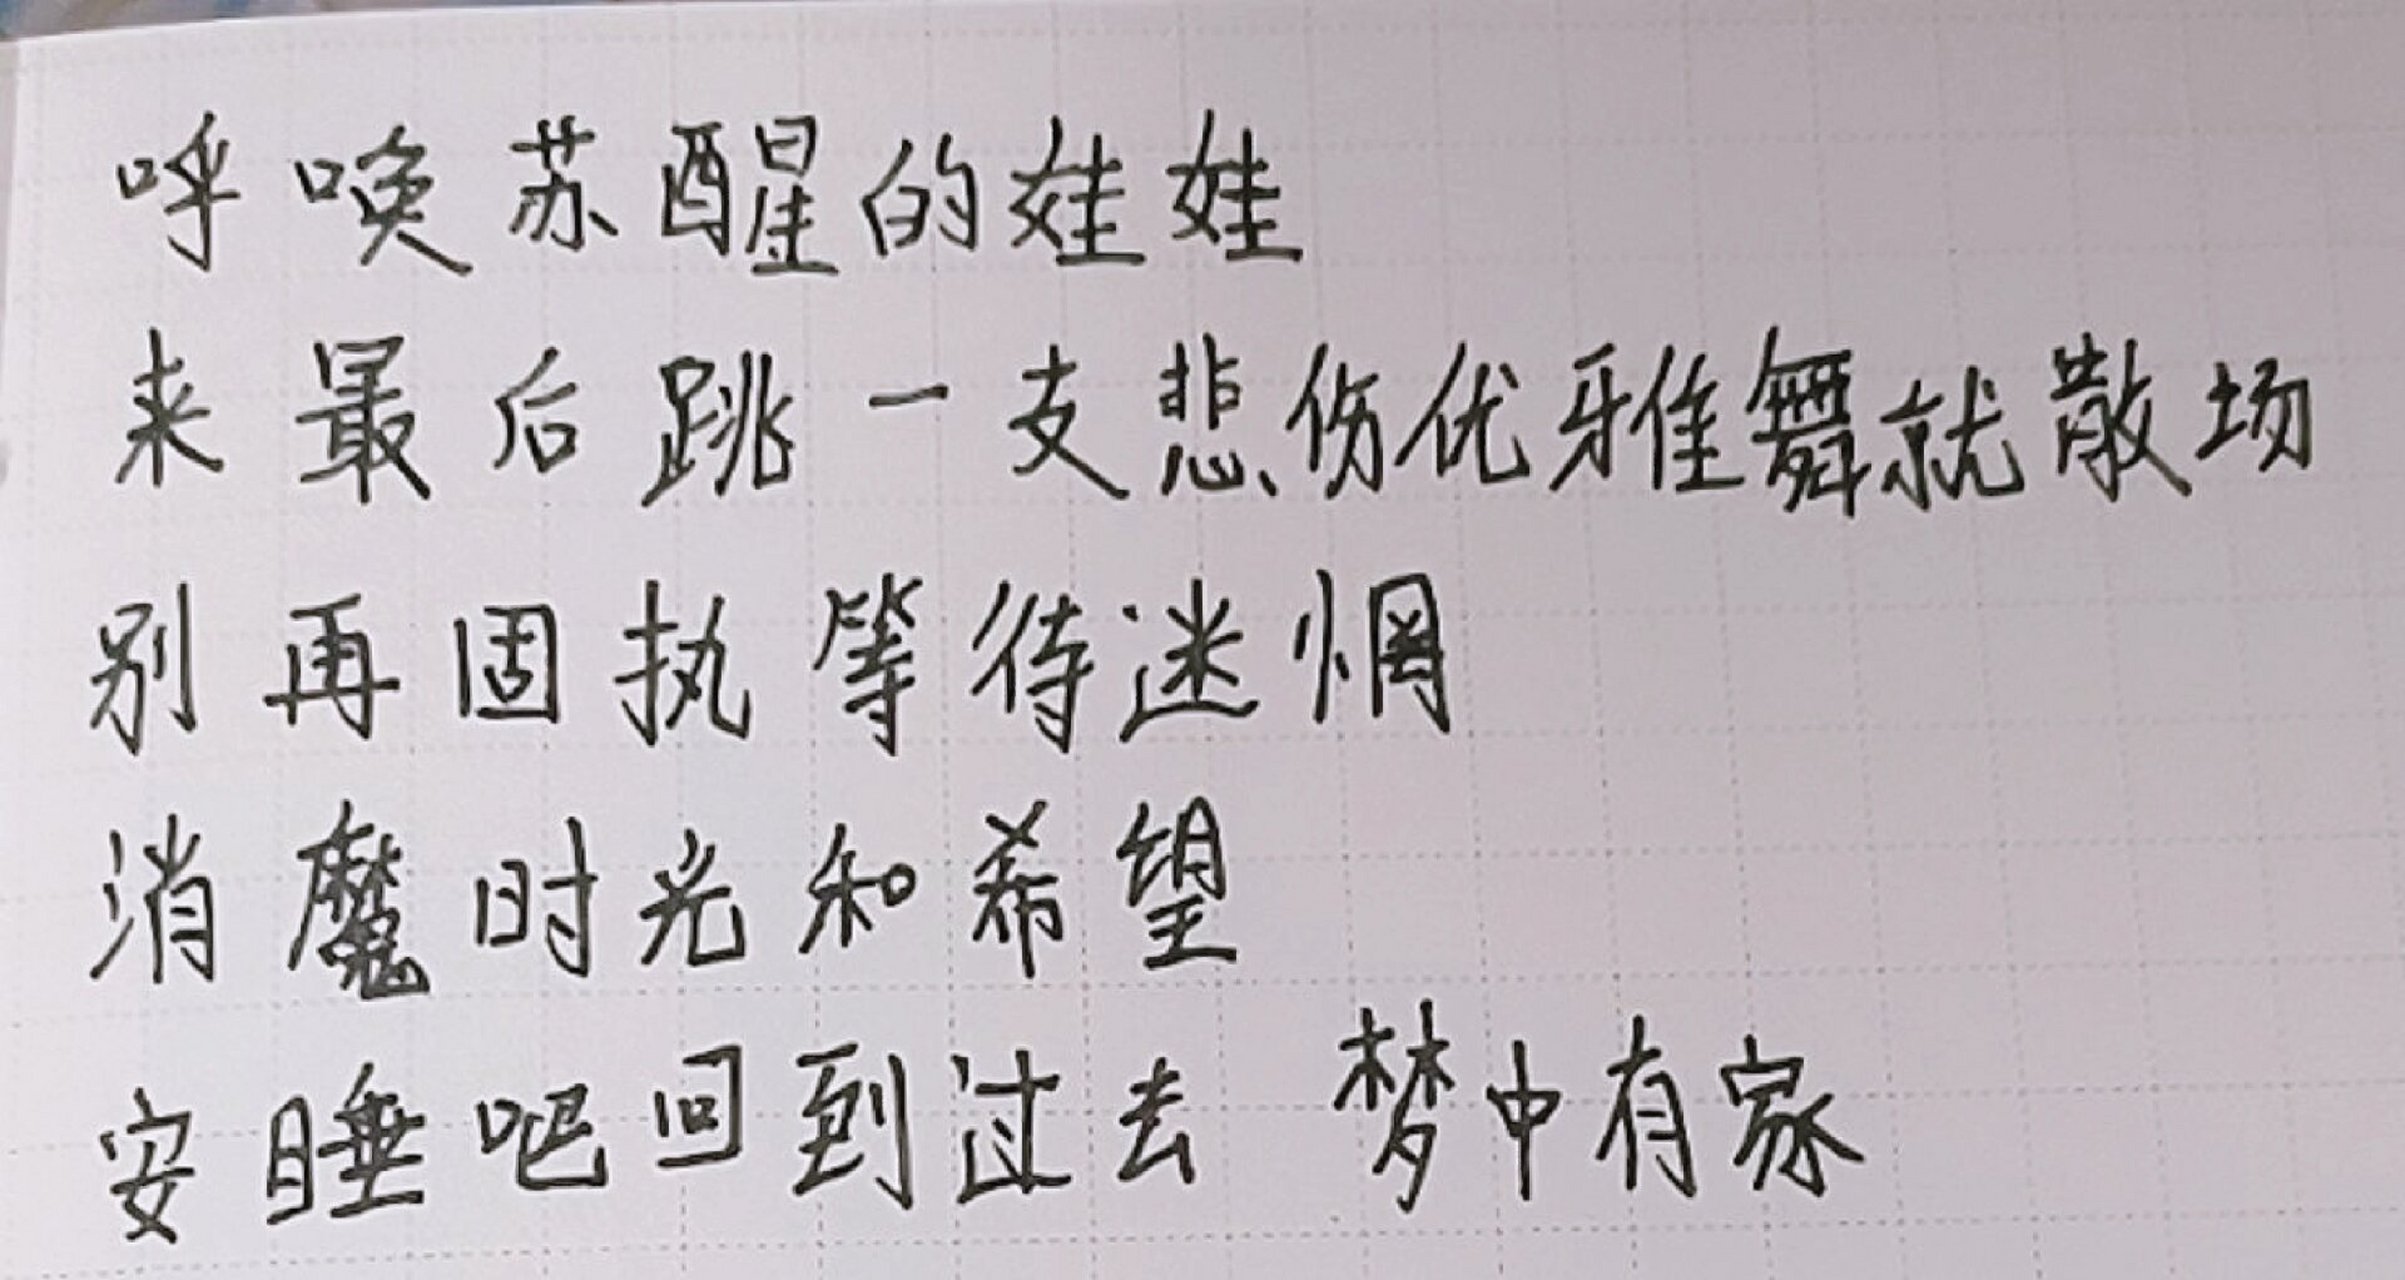 呼唤苏醒的娃娃
来最后跳一支悲伤优雅舞就散场
别再固执等待迷惘
消魔时光和希望
安睡吧回到过去 梦中有家